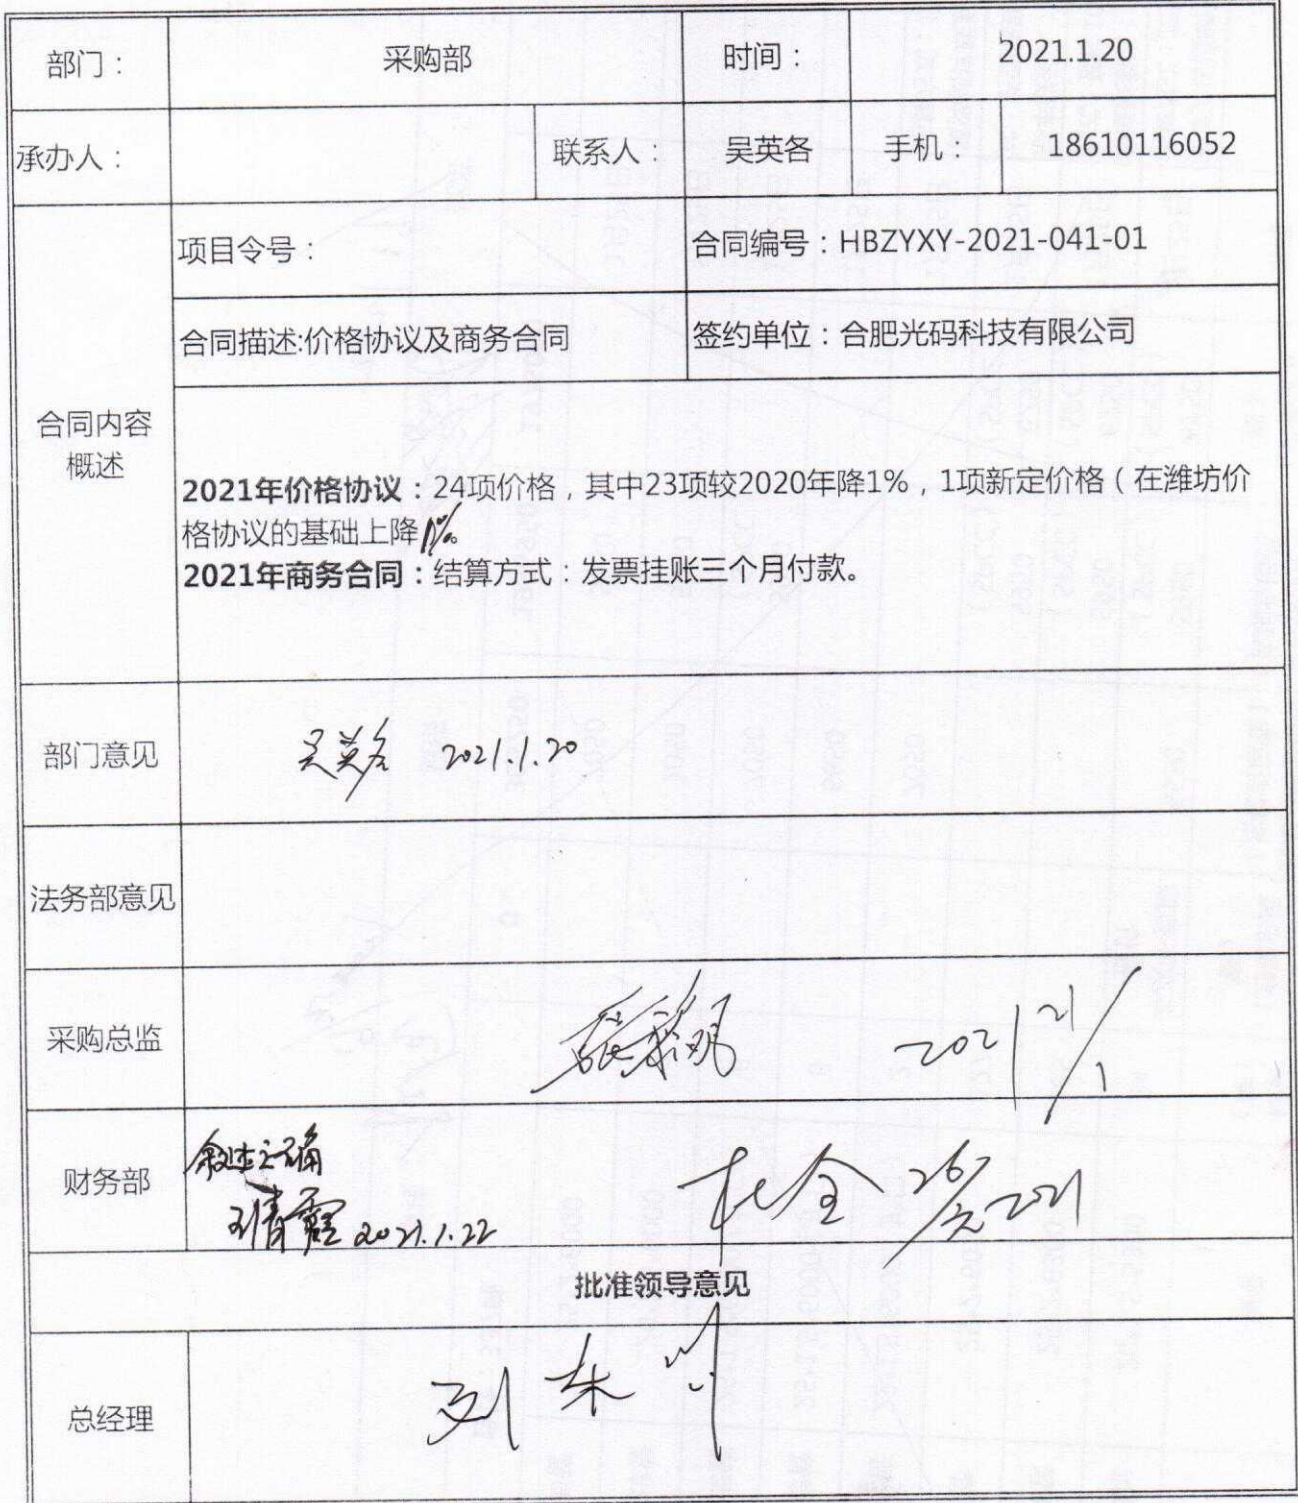 部门： 采购部 时间： 2021.1.20
承办人： 联系人： 吴英各 手机： 18610116052
项目令号： 合同编号：HBZYXY-2021-041-01
合同描述:价格协议及商务合同 签约单位：合肥光码科技有限公司
合同内容
概述
2021年价格协议：24项价格，其中23项较2020年降1%，1项新定价格（在潍坊价
格协议的基础上降1%
2021年商务合同：结算方式：发票挂账三个月付款。
部门意见 吴英各 2021.1.20
法务部意见
采购总监 2021 21/1
财务部
2021.1.22
批准领导意见
总经理